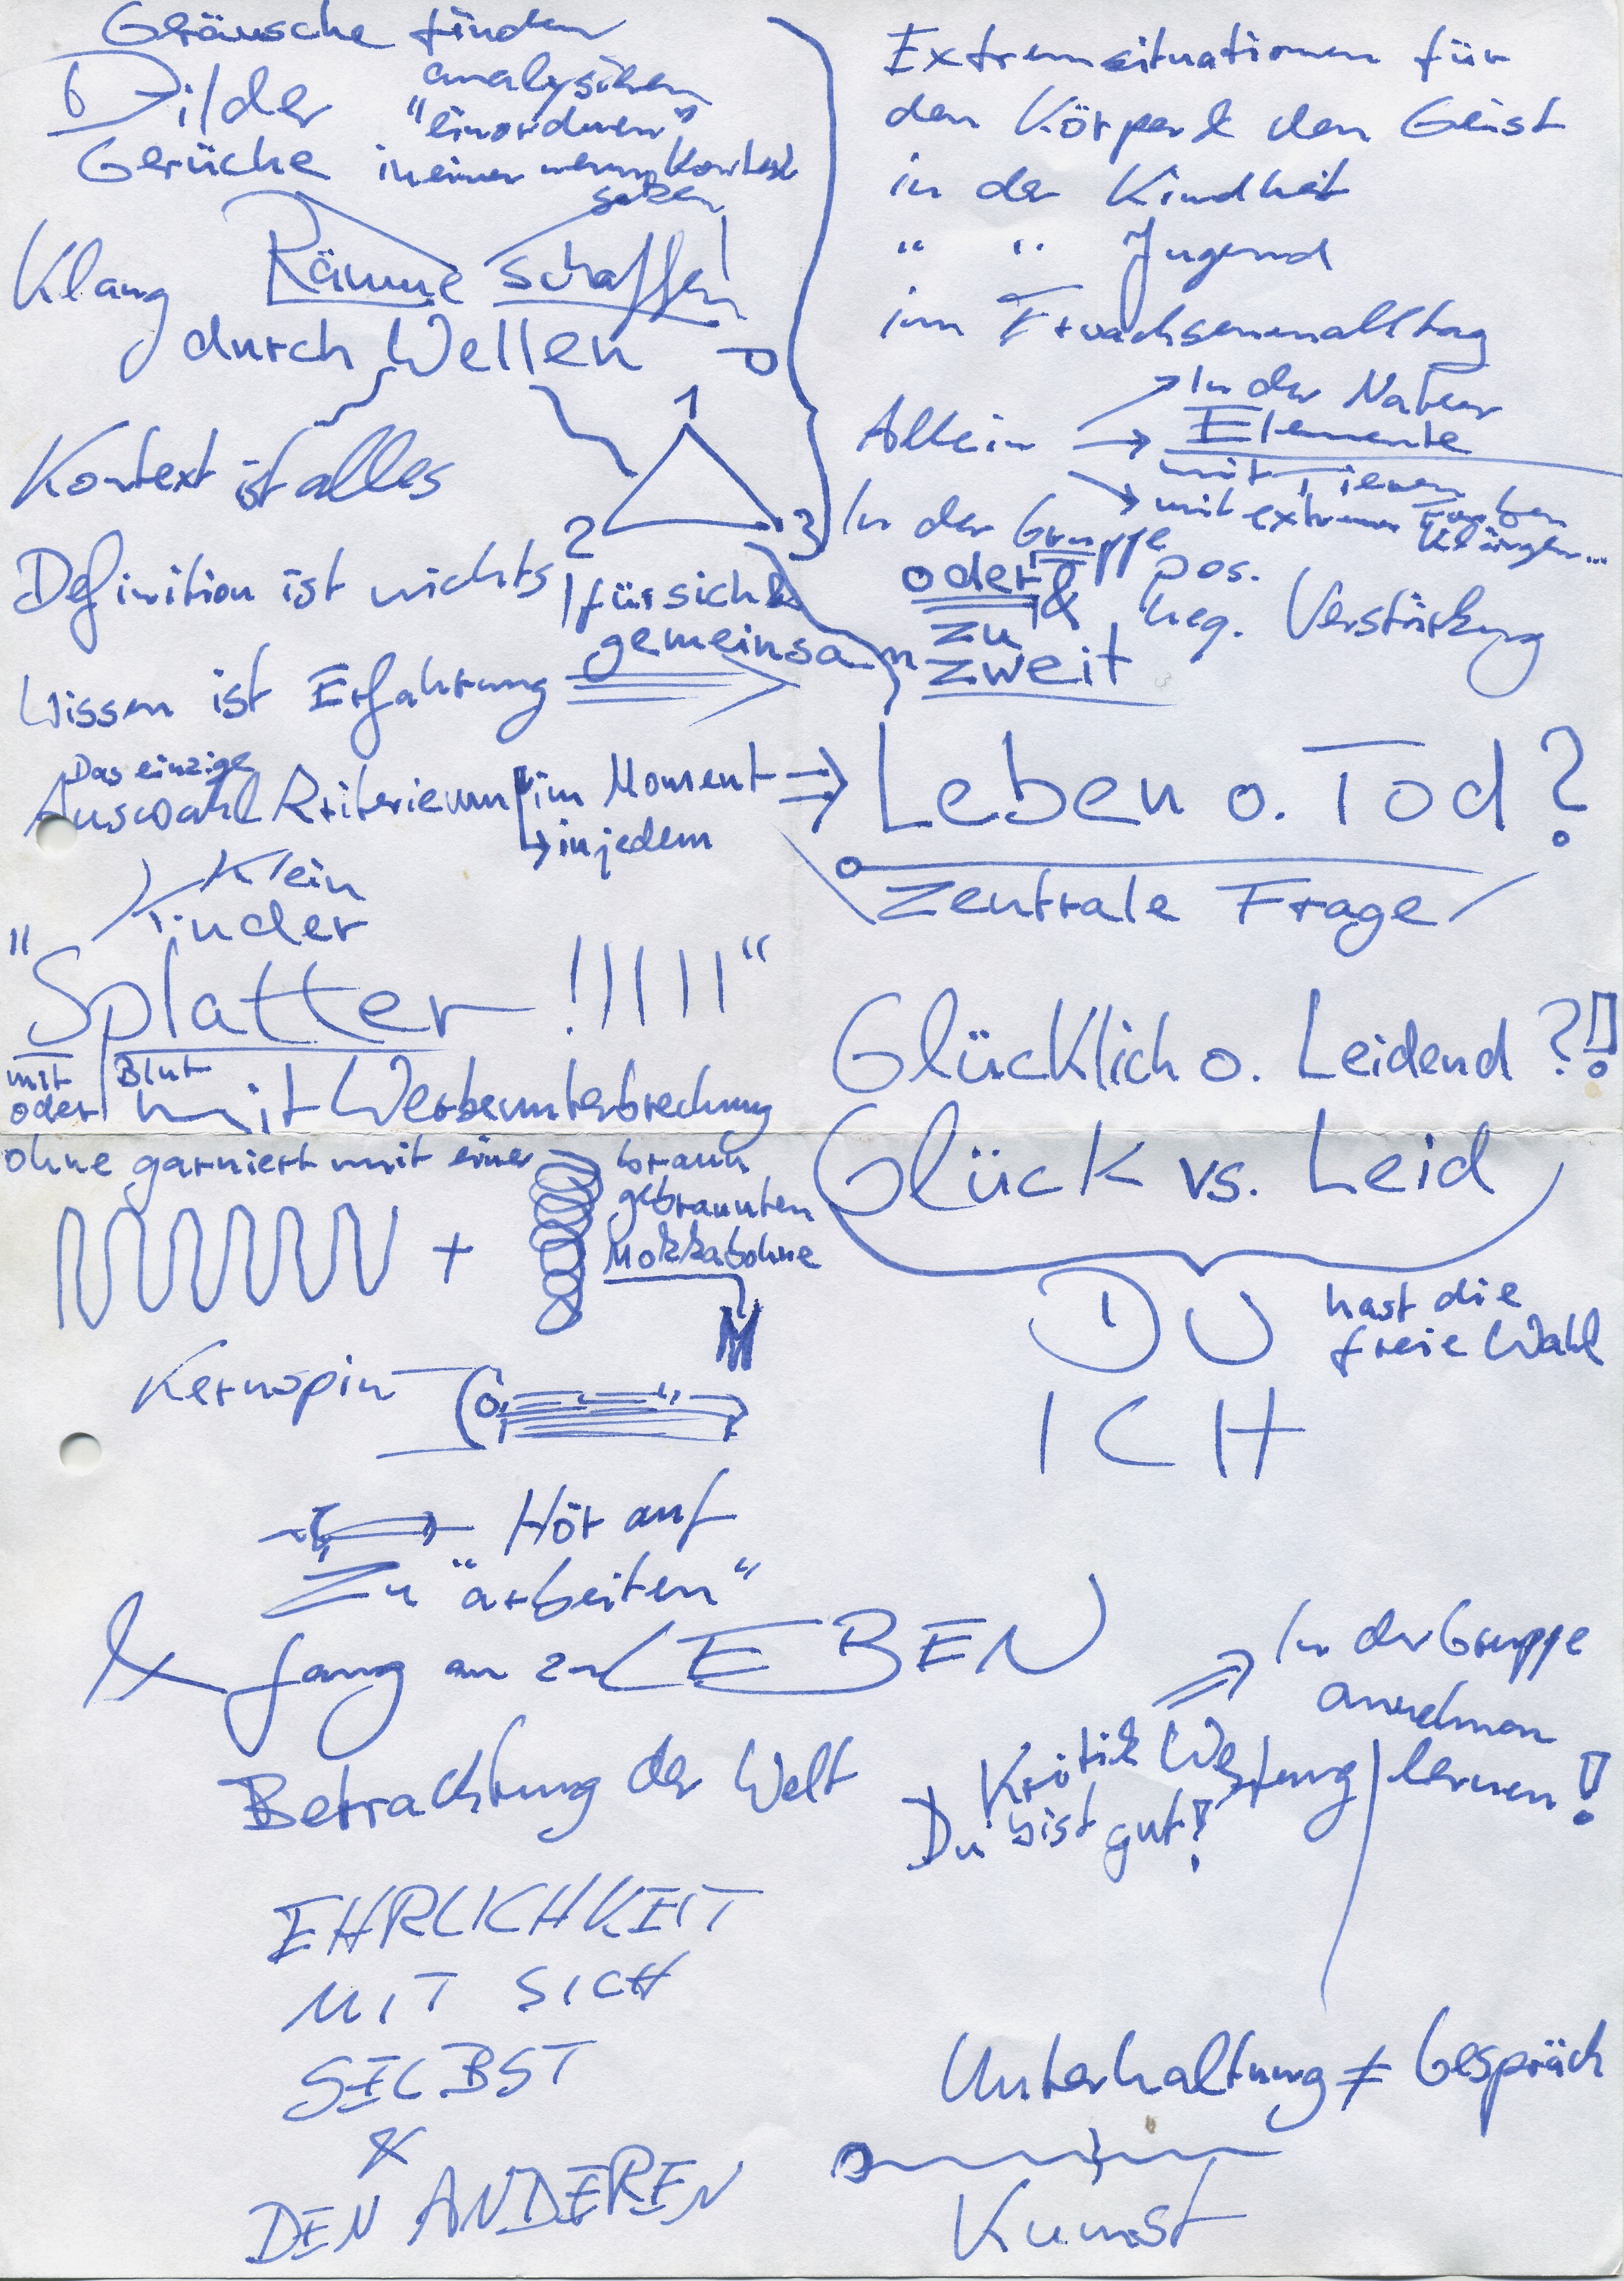 Geräusche finden
Bilder analysieren
"einordnen"
Gerüche in einen neuen Kontext
setzen
Klang Räume schaffen
durch Wellen
1
2 3
Kontext ist alles
Definition ist nichts
für sich &
gemeinsam
Wissen ist Erfahrung
Das einzige
Auswahl Kriterium im Moment
in jedem
Klein
Kinder
"Splatter!!!!!!"
mit Blut
oder mit Werbeunterbrechung
ohne garniert mit einer braun
gebrannten
+ Mokkabohne
Kernspin
Hör auf
zu "arbeiten"
& fang an zu LEBEN
Betrachtung der Welt
EHRLICHKEIT
MIT SICH
SELBST
&
DEN ANDEREN
Extremsituationen für
den Körper & den Geist
in der Kindheit
" " Jugend
im Erwachsenenalltag
Allein
In der Natur
Elemente
mit Tieren
mit extremen Farben
Klängen...
In der Gruppe
oder &
zu
zweit
pos.
neg. Verstärkung
Leben o. Tod?
Zentrale Frage
Glücklich o. Leidend?!
Glück vs. Leid
DU hast die
freie Wahl
ICH
In der Gruppe
annehmen
lernen!
Kritik Wertung
Du bist gut!
Unterhaltung ≠ Gespräch
Kunst